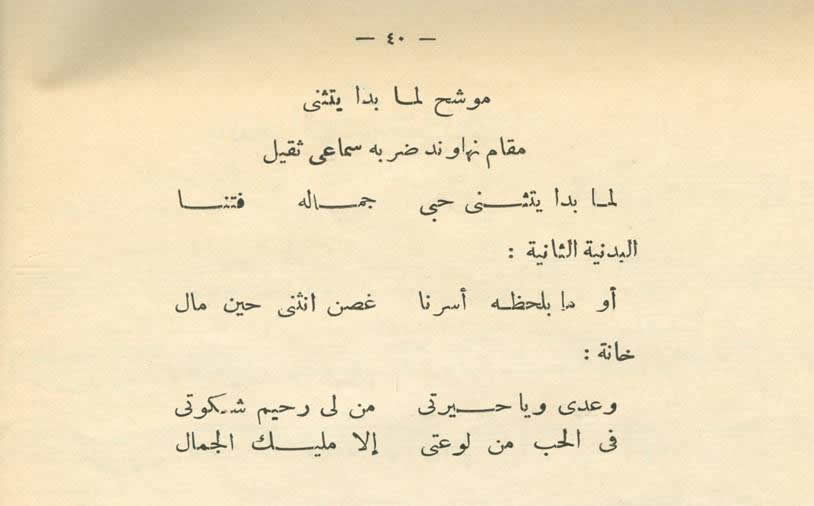 — ٤٠ —
موشح لما بدا يتثنى
مقام نهاوند ضربه سماعى ثقيل
لما بدا يتثنى حبى جماله فتننا
البدنية الثانية :
أو ما بلحظه أسرنا غصن انثنى حين مال
خانة :
وعدى ويا حيرتى من لى رحيم شكوتى
فى الحب من لوعتى إلا مليك الجمال